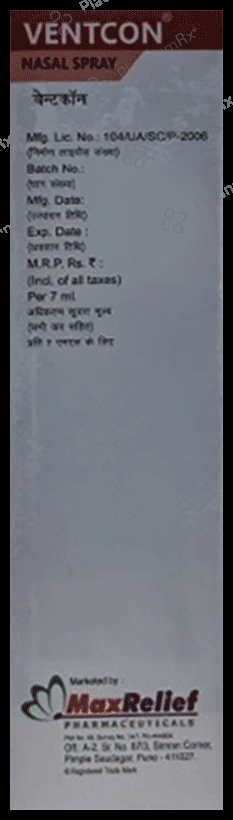 VENTCON®
NASAL SPRAY
वेन्टकॉन
Mfg. Lic. No.: 104/UA/SC/P-2006
(निर्माण लाइसेंस संख्या)
Batch No.:
(घान संख्या)
Mfg. Date:
(उत्पादन तिथि)
Exp. Date :
(अवसान तिथि)
M.R.P. Rs. ₹ :
(Incl. of all taxes)
Per 7 ml.
अधिकतम खुदरा मूल्य
(सभी कर सहित)
प्रति 7 एमएल के लिए
Marketed by :
MaxRelief
PHARMACEUTICALS
Off.: A-2, Sr. No. 67/3, Simran Corner,
Pimple Saudagar, Pune - 411027.
® Registered Trade Mark